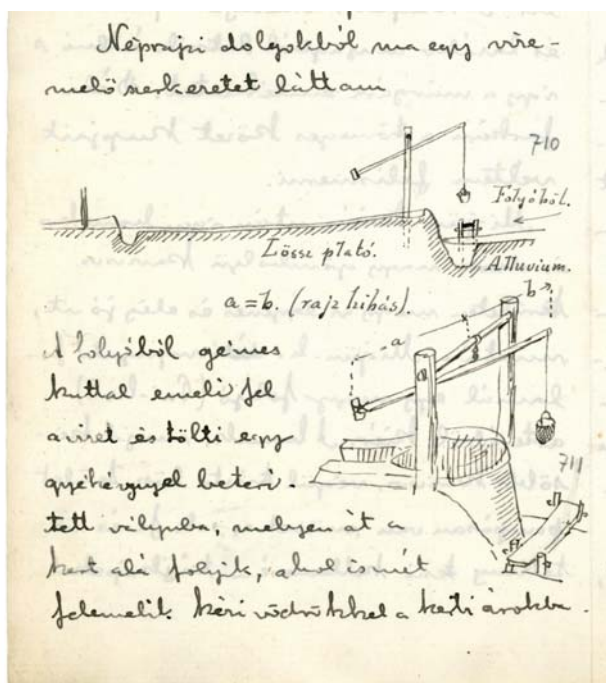 Néprajzi dolgokból ma egy vize-
melő szerkezetet láttam
710
Folyóból.
Lösse plató.
Alluvium.
a=b. (rajz hibás).
b
a
A folyóból gémes
kúttal emeli fel
a vizet és tölti egy
gyékénnyel beterí-
tett vályuba, melyen át a
kert alá folyik, ahol ismét
felemelik kézi vödrökkel a kerti árokba.
711